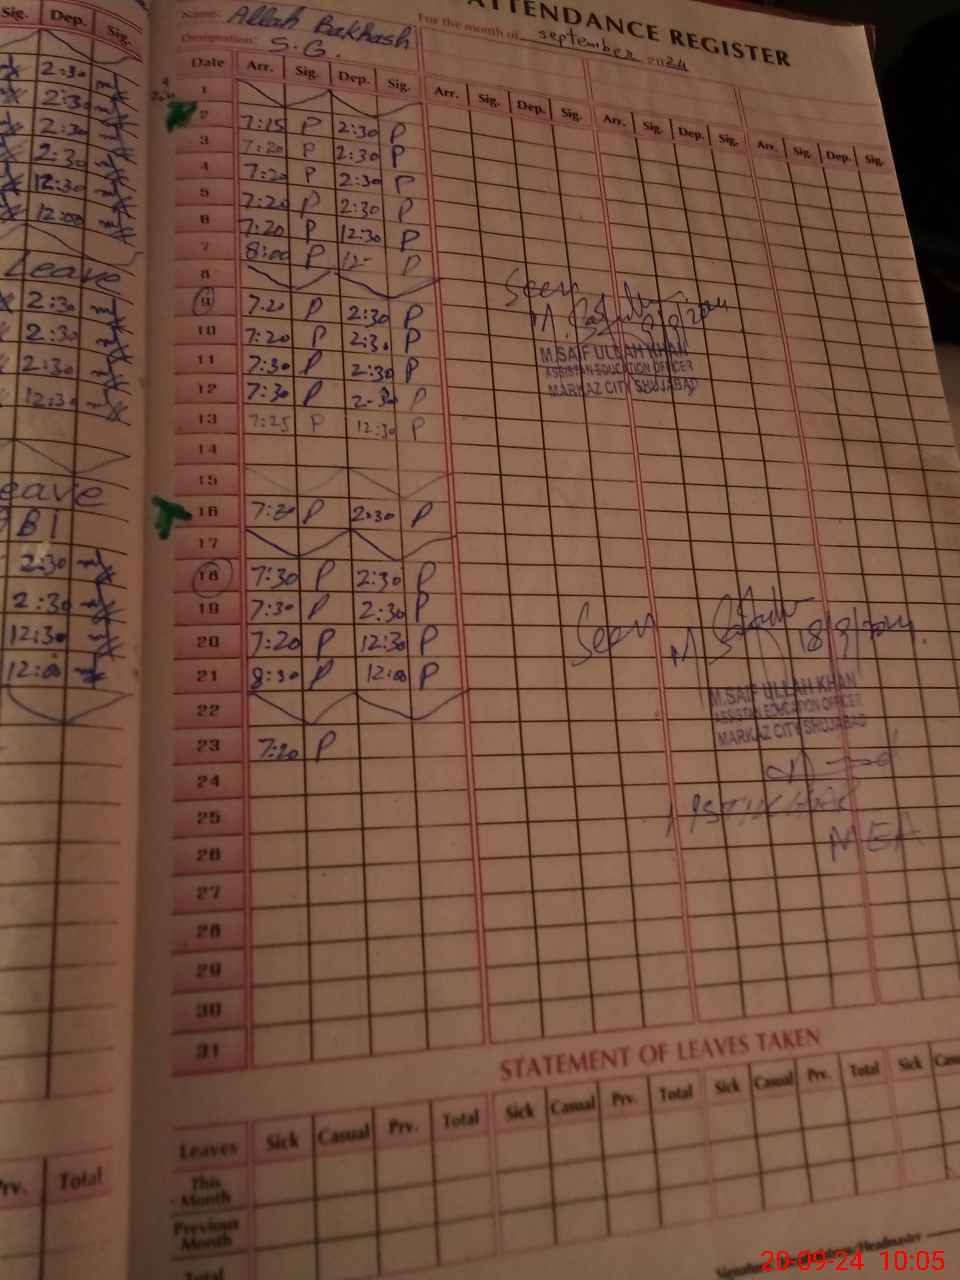 ATTENDANCE REGISTER
Name: Allah Bakhash
For the month of september 2024
Designation: S.G.
Sig. Dep. Sig.
Date Arr. Sig. Dep. Sig. Arr. Sig. Dep. Sig. Arr. Sig. Dep. Sig. Arr. Sig. Dep. Sig.
1
2 7:25 P 2:30 P
3 7:20 P 2:30 P
4 7:20 P 2:30 P
5 7:20 P 2:30 P
6 7:20 P 12:30 P
7 8:00 P 12- P
8
9 7:20 P 2:30 P
10 7:20 P 2:30 P
11 7:30 P 2:30 P
12 7:30 P 2-30 P
13 7:25 P 12:30 P
14
15
16 7:20 P 2:30 P
17
18 7:30 P 2:30 P
19 7:30 P 2:30 P
20 7:20 P 12:30 P
21 8:30 P 12:00 P
22
23 7:20 P
24
25
26
27
28
29
30
31
2:30
2:30
2:30
2:30
12:30
12:00
Leave
2:30
2:30
2:30
12:30
eave
BI
2:30
2:30
12:30
12:00
Seen
M.SAIF ULLAH KHAN
ASSISTAN EDUCATION OFFICER
MARKAZ CITY SHUJABAD
Seen
M.SAIF ULLAH KHAN
ASSISTAN EDUCATION OFFICER
MARKAZ CITY SHUJABAD
MEA
STATEMENT OF LEAVES TAKEN
Leaves Sick Casual Prv. Total Sick Casual Prv. Total Sick Casual Prv. Total Sick Casu
This Month
Previous Month
Total
Prv. Total
/Headmaster
20-09-24 10:05